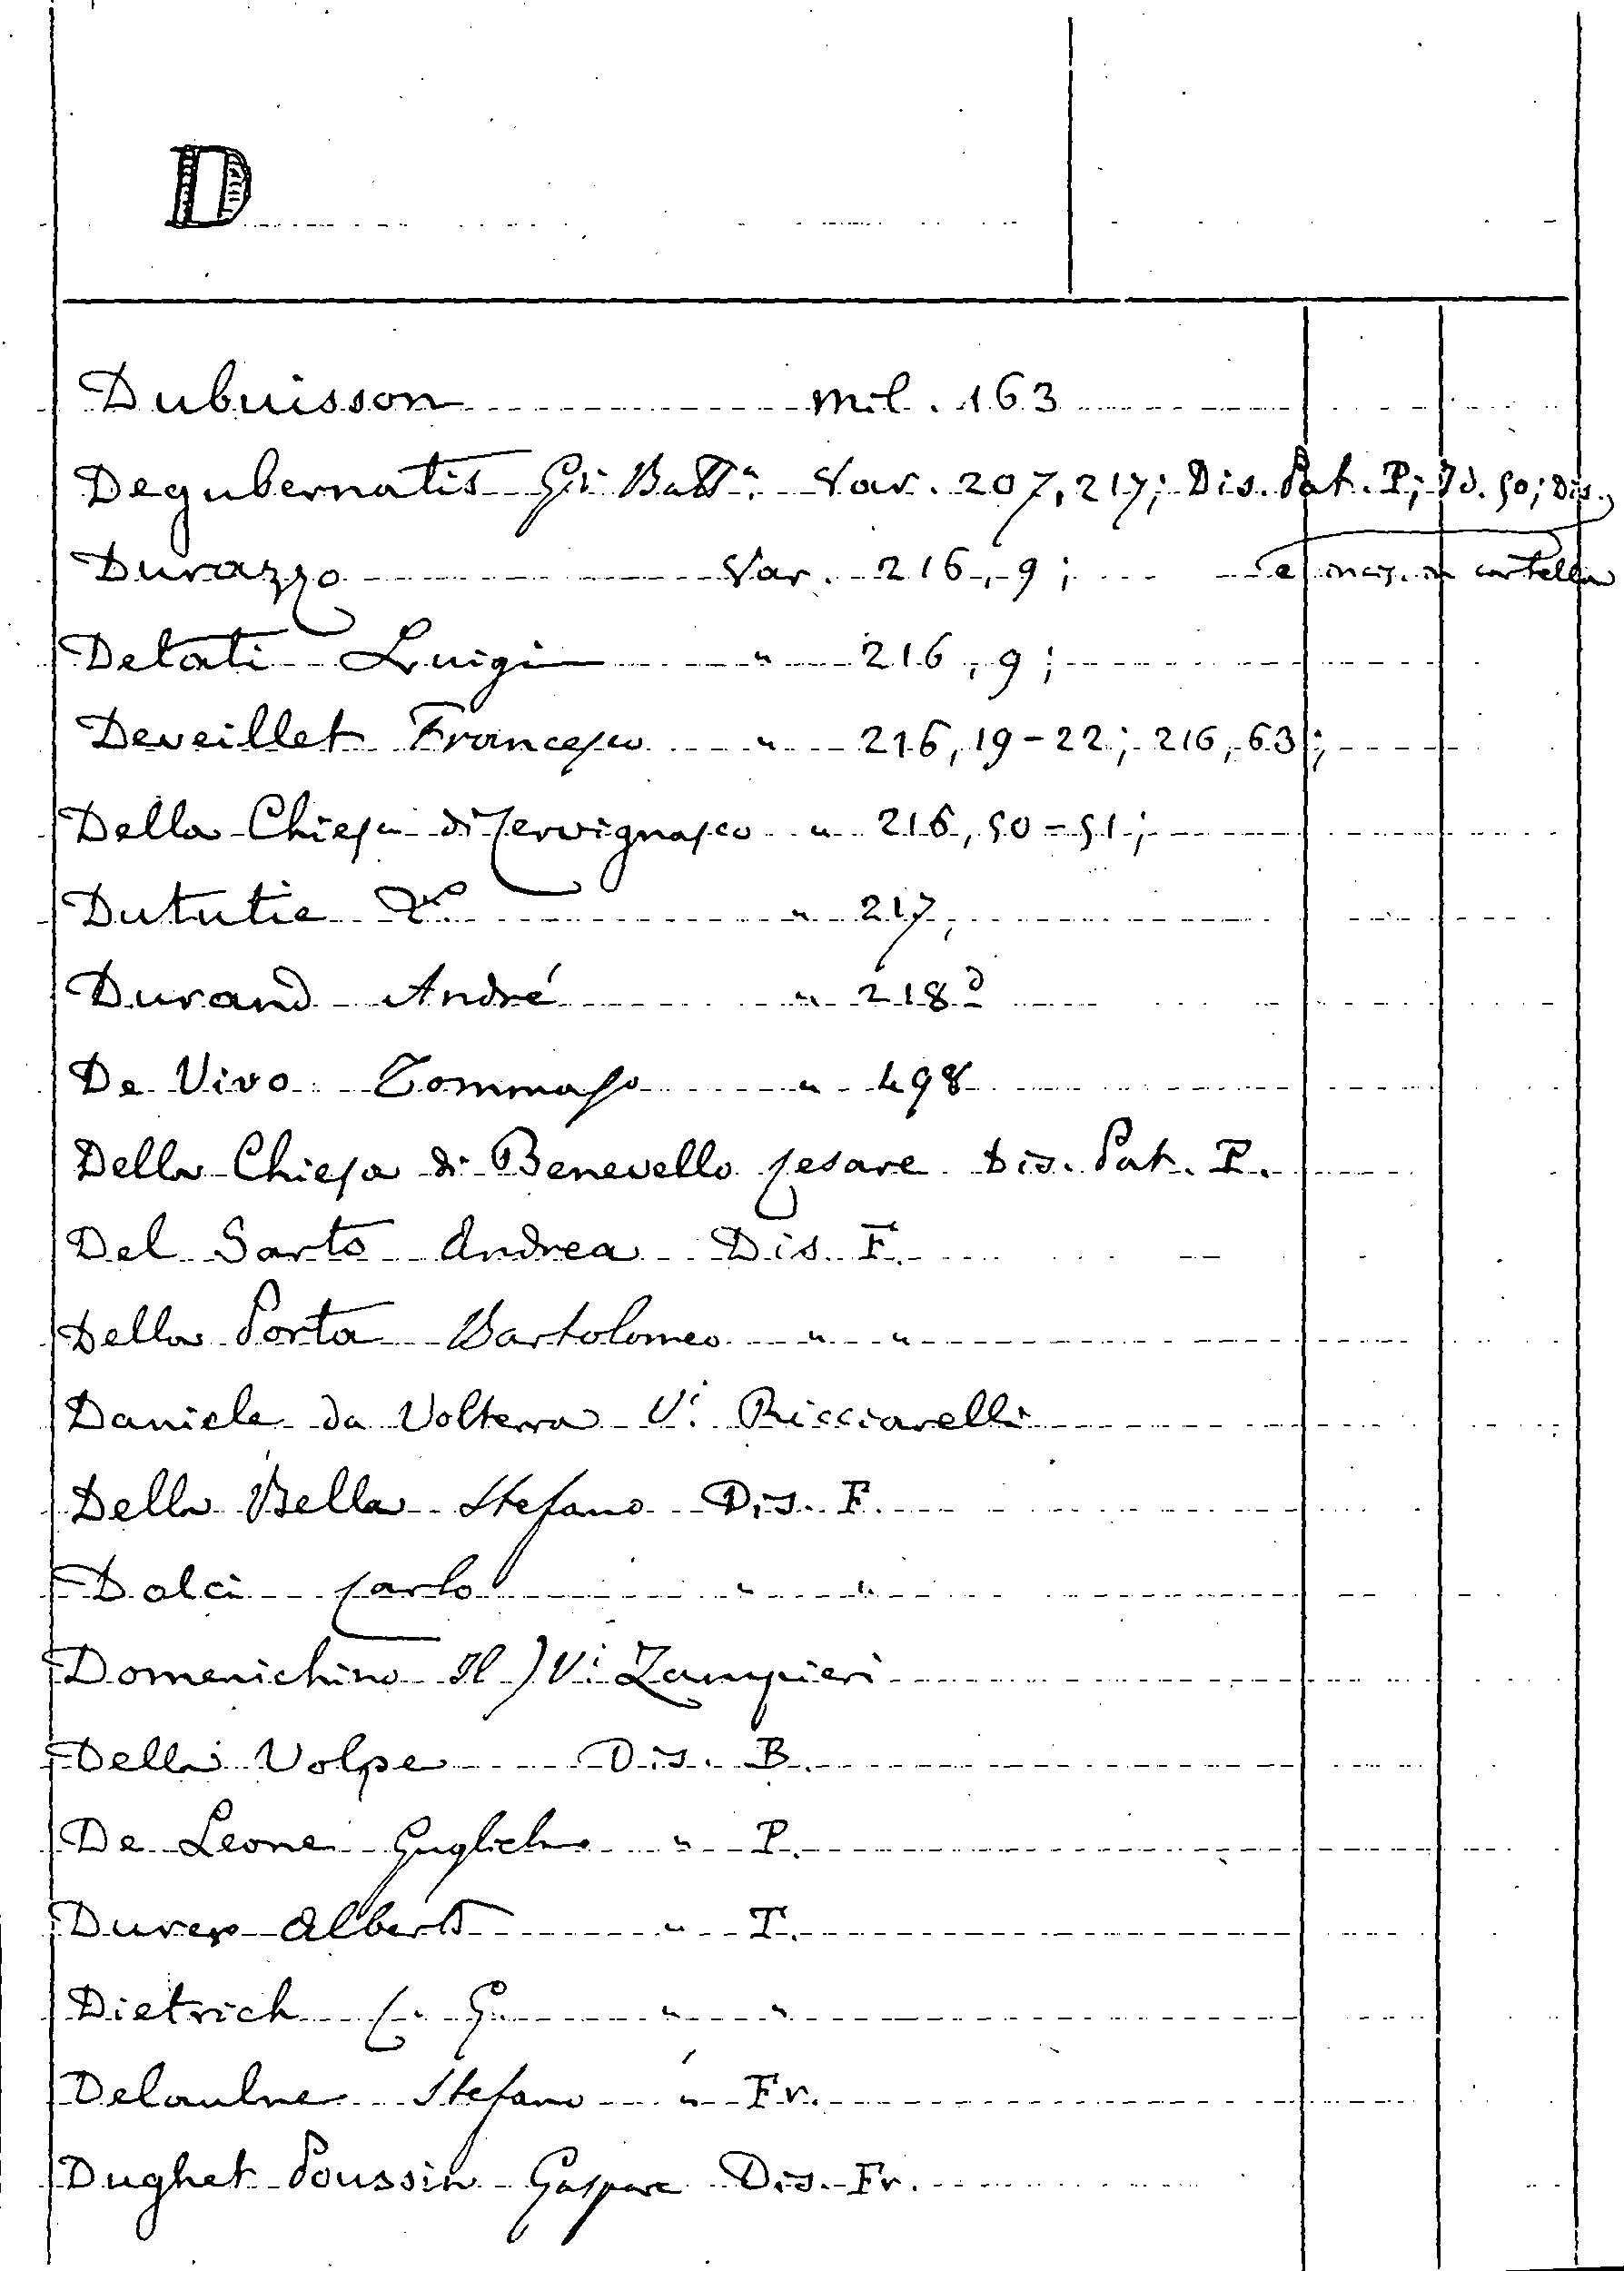 D
Dubuisson mil. 163
Degubernatis Gi. Batt.a Var. 207, 217; Dis. Pat. P; Id. 50; Dis.
Durazzo Var. 216, 9; e incis. in cartella
Detati Luigi " 216, 9;
Deveillet Francesco " 216, 19-22; 216, 63;
Della Chiesa di Cervignasco " 216, 50-51;
Dututie " 217,
Durand André " 218 d
De Vivo Tommaso " 498
Della Chiesa di Benevello Cesare Dis. Pat. P.
Del Sarto Andrea Dis. F.
Della Porta Bartolomeo " "
Daniele da Volterra V. Ricciarelli
Della Bella Stefano Dis. F.
Dolci Carlo " "
Domenichino Il) V. Zampieri
Della Volpe Dis. B.
De Leone Guglielmo " P.
Durer Alberto " T.
Dietrich C. G. " "
Delaulne Stefano " Fr.
Dughet Poussin Gaspare Dis. Fr.